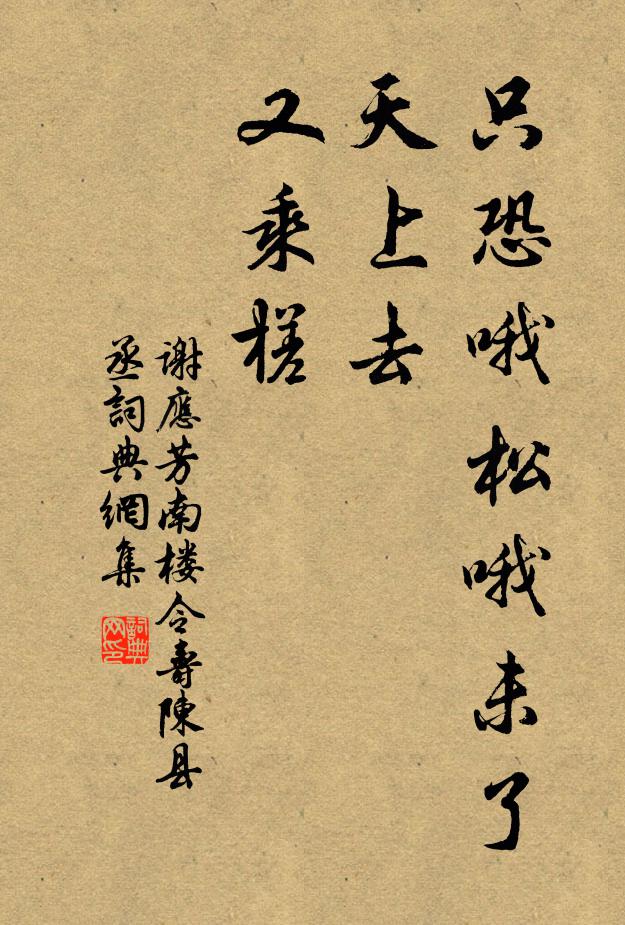 只恐哦松哦未了
天上去
又乘槎
谢應芳南楼令壽陳县
丞詞典網集
詞典网印